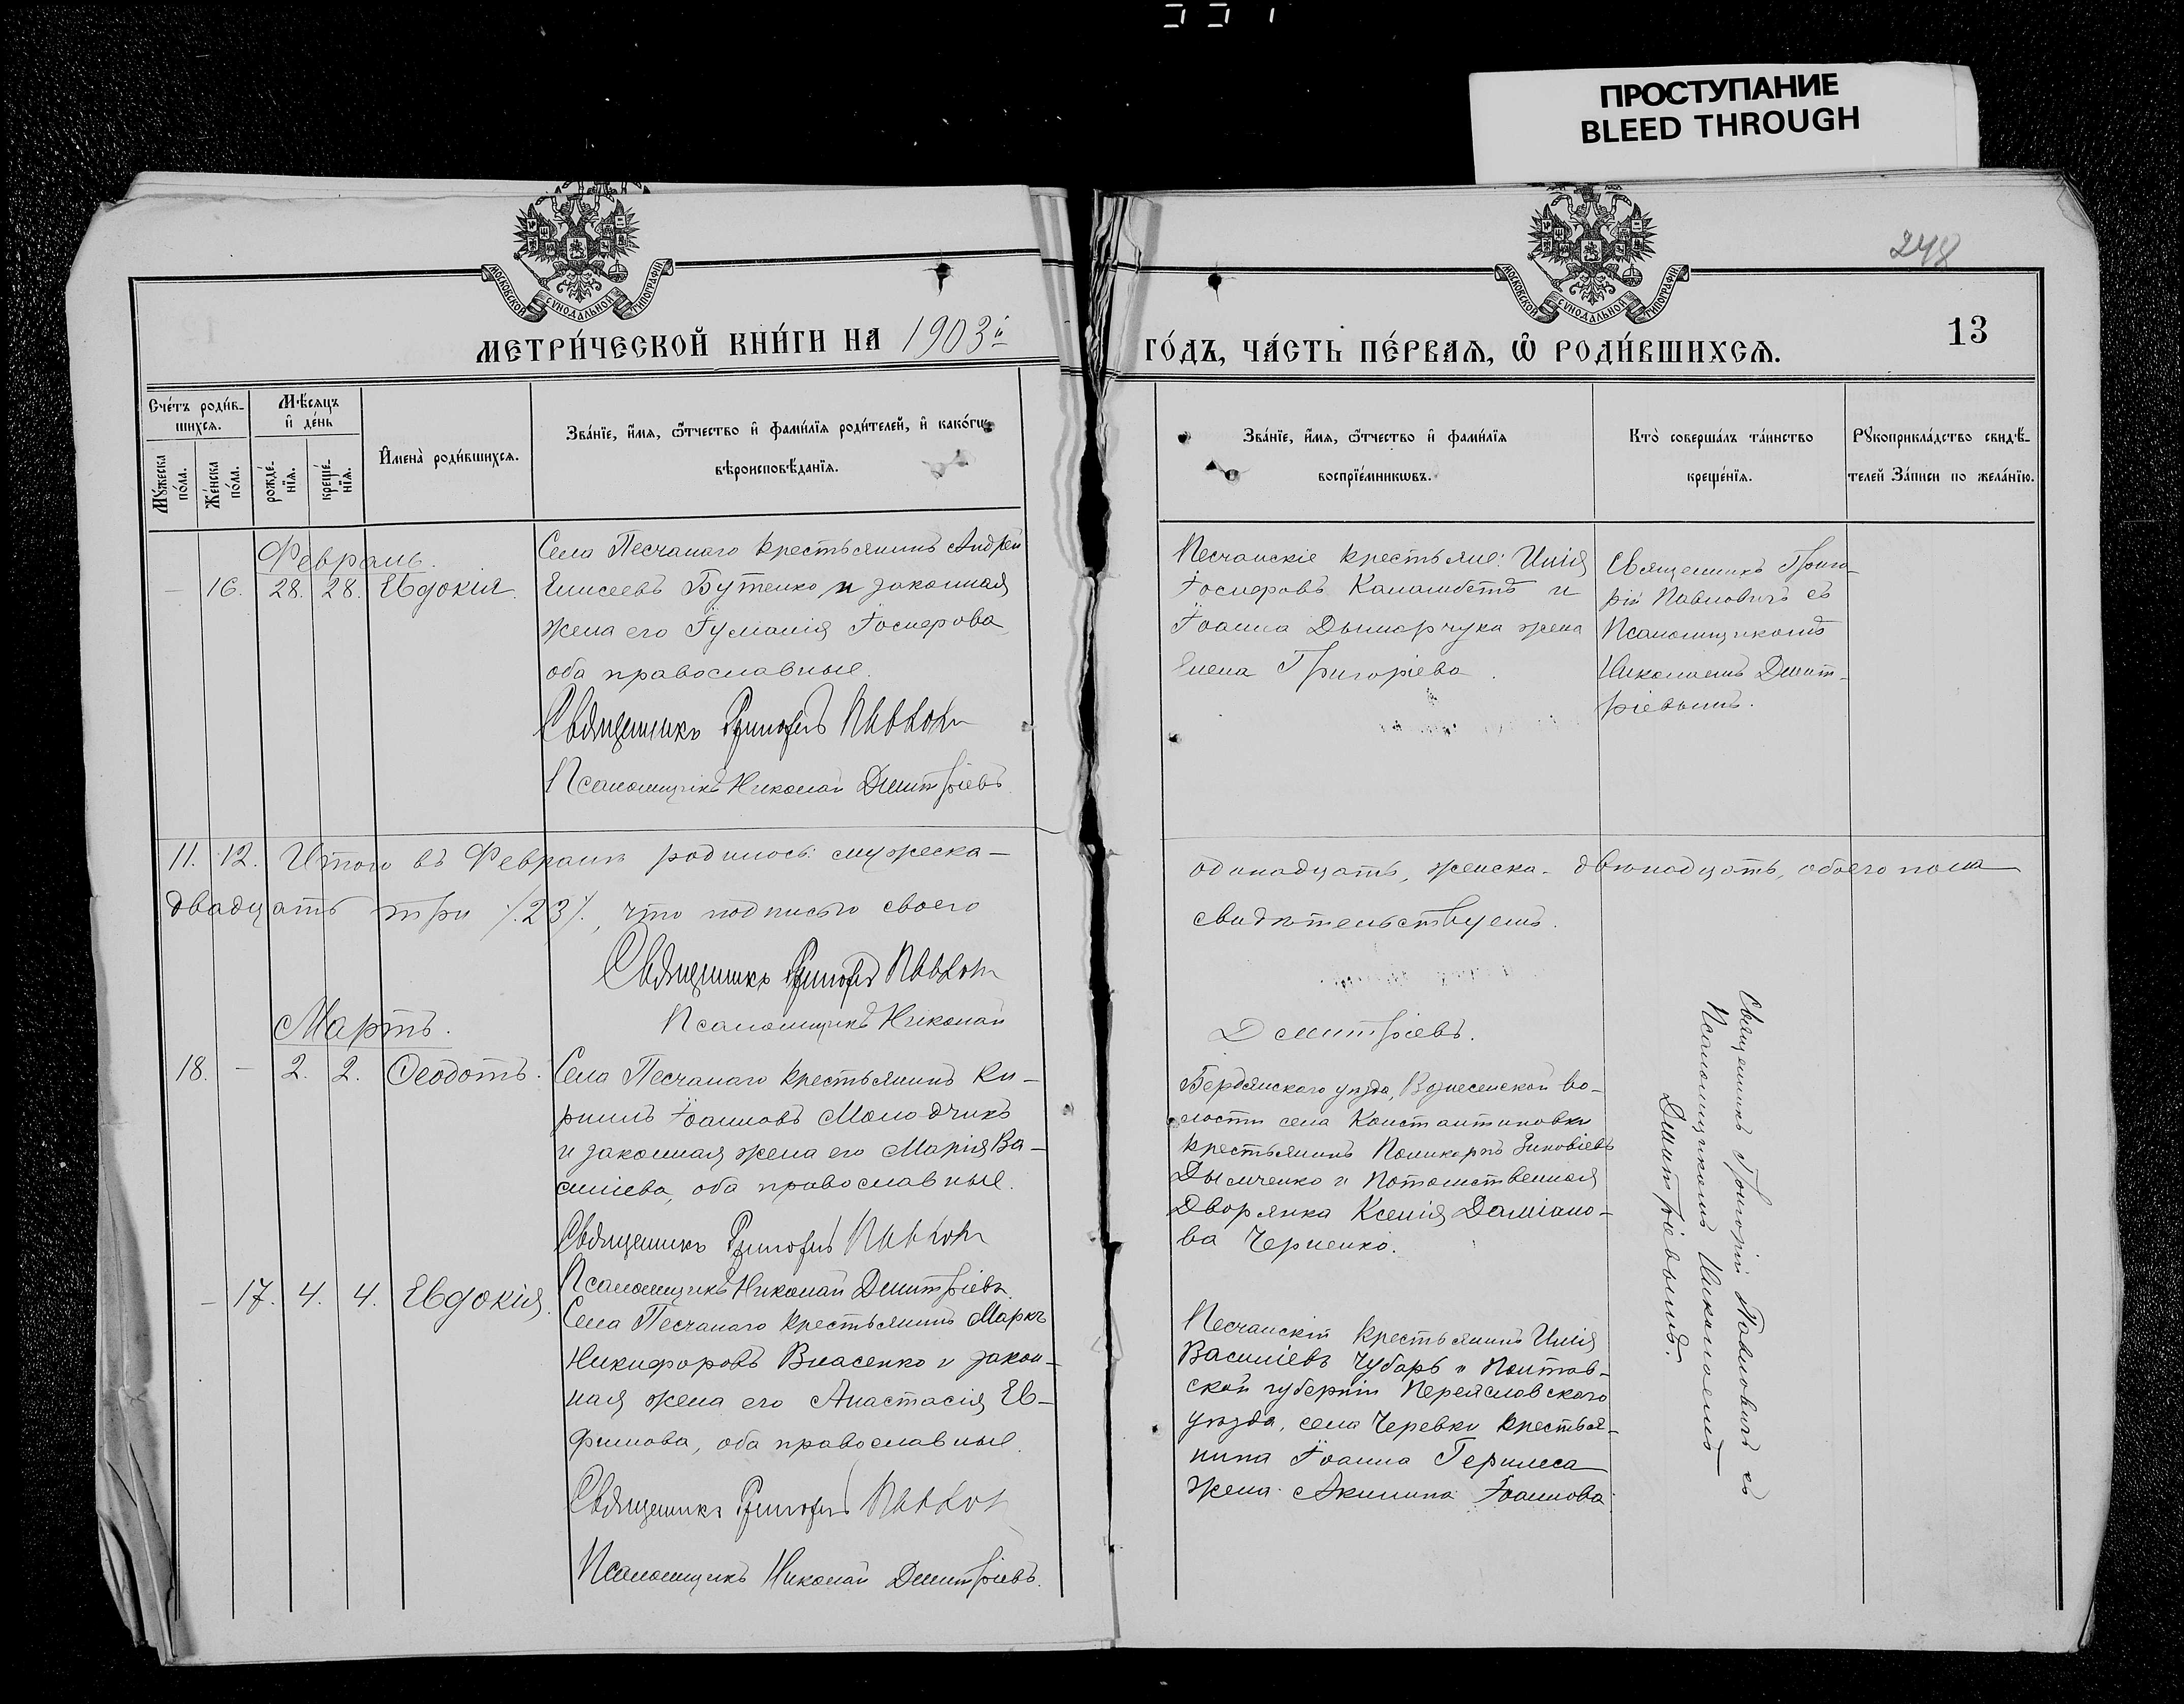 ПРОСТУПАНИЕ
BLEED THROUGH
МОСКОВСКОЙ СѴНОДАЛЬНОЙ ТИПОГРАФІИ
МОСКОВСКОЙ СѴНОДАЛЬНОЙ ТИПОГРАФІИ
248
13
МЕТРИ́ЧЕСКОЙ КНИ́ГИ НА 1903й
ГО́ДЪ, ЧА́СТЬ ПЕ́РВАѦ, Ѡ҆ РОДИ́ВШИХСѦ.
Сче́тъ роди́в-
шихсѧ.
Мꙋ́жеска по́ла.
Же́нска по́ла.
Мѣ́сѧцъ
и҆ де́нь
рожде́-
нїѧ.
креще́-
нїѧ.
И҆мена̀ роди́вшихсѧ.
Зва́нїе, и҆́мѧ, ѻ҆́тчество и҆ фами́лїѧ роди́телей, и҆ како́гѡ
вѣроисповѣ́данїѧ.
Зва́нїе, и҆́мѧ, ѻ҆́тчество и҆ фами́лїѧ
воспрїе́мникѡвъ.
Кто̀ соверша́лъ та́инство
креще́нїѧ.
Рꙋкоприкла́дство свидѣ́-
телей За́писи по жела́нїю.
Февраль.
– 16. 28. 28. Евдокія.
Села Песчанаго крестьянинъ Андрей
Елисеевъ Бутенко и законная
жена его Іуліанія Іосифова
оба православные.
Священникъ Григорій Павлович
Псаломщикъ Николай Димитріевъ.
Песчанскіе крестьяне: Илія
Іосифовъ Каламбетъ и
Іоанна Дымарчука жена
Елена Григоріева.
Священникъ Григо-
рій Павловичъ съ
Псаломщикомъ
Николаемъ Димит-
ріевымъ.
11. 12. Итого въ Февралѣ родилось: мужеска –
одинадцать, женска – двѣнадцать, обоего пола
двадцать три /.23/., что подписью своею
свидѣтельствуемъ.
Священникъ Григорій Павлович
Псаломщикъ Николай
Димитріевъ.
Мартъ.
18. – 2. 2. Ѳеодотъ.
Села Песчанаго крестьянинъ Ки-
риллъ Іоанновъ Молодчикъ
и законная жена его Марія Ва-
силіева, оба православные.
Священникъ Григорій Павлович
Псаломщикъ Николай Димитріевъ.
Бердянскаго уѣзда, Вознесенской во-
лости села Константиновки
крестьянинъ Поликарпъ Зиновіевъ
Дымченко и Потомственная
Дворянка Ксенія Даміано-
ва Черненко.
– 17. 4. 4. Евдокія.
Села Песчанаго крестьянинъ Маркъ
Никифоровъ Власенко и закон-
ная жена его Анастасія Ев-
фимова, оба православные.
Священникъ Григорій Павлович
Псаломщикъ Николай Димитріевъ.
Песчанскій крестьянинъ Илія
Василіевъ Чубарь и Полтав-
ской губерніи Переяславскаго
уѣзда, села Черевки крестья-
нина Іоанна
жена Акилина Іоаннова.
Священникъ Григорій Павловичъ съ
Псаломщикомъ Николаемъ
Димитріевымъ.